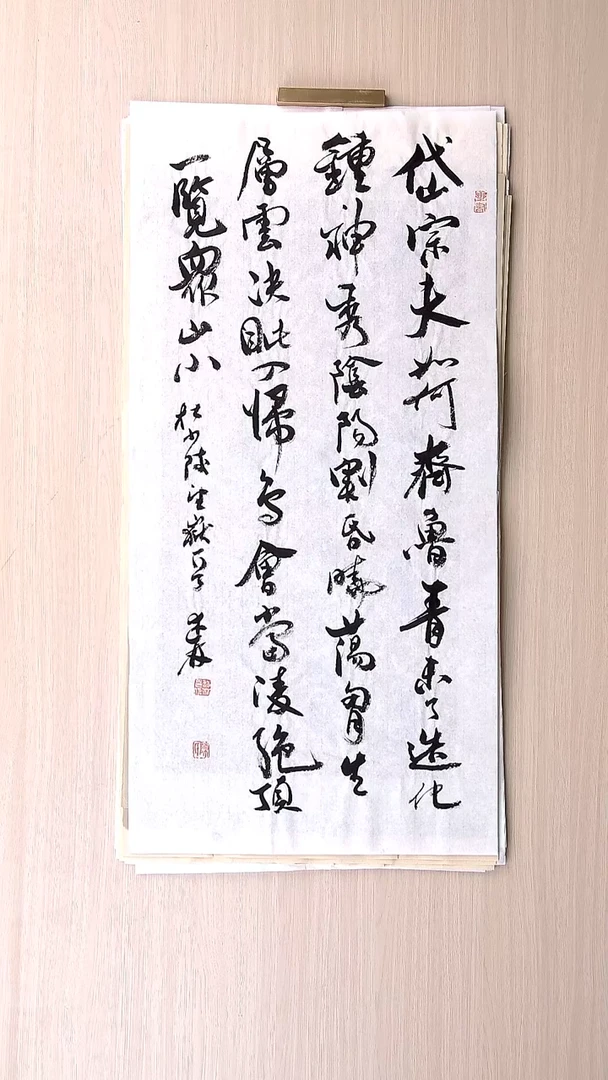 岱宗夫如何齊魯青未了造化
鍾神秀陰陽割昏曉蕩胷生
層雲決眦入歸鳥會當凌絕頂
一覽衆山小
杜少陵望嶽